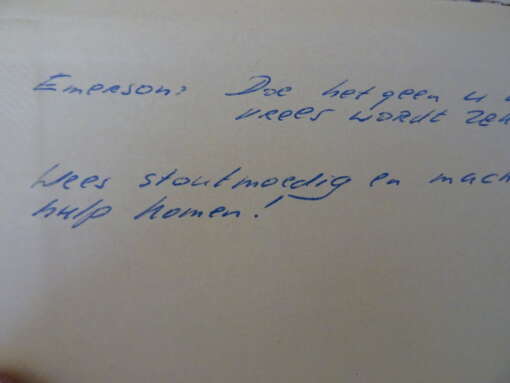 Emerson: Doe hetgeen u
vrees wordt
Wees stoutmoedig en mach
hulp komen!